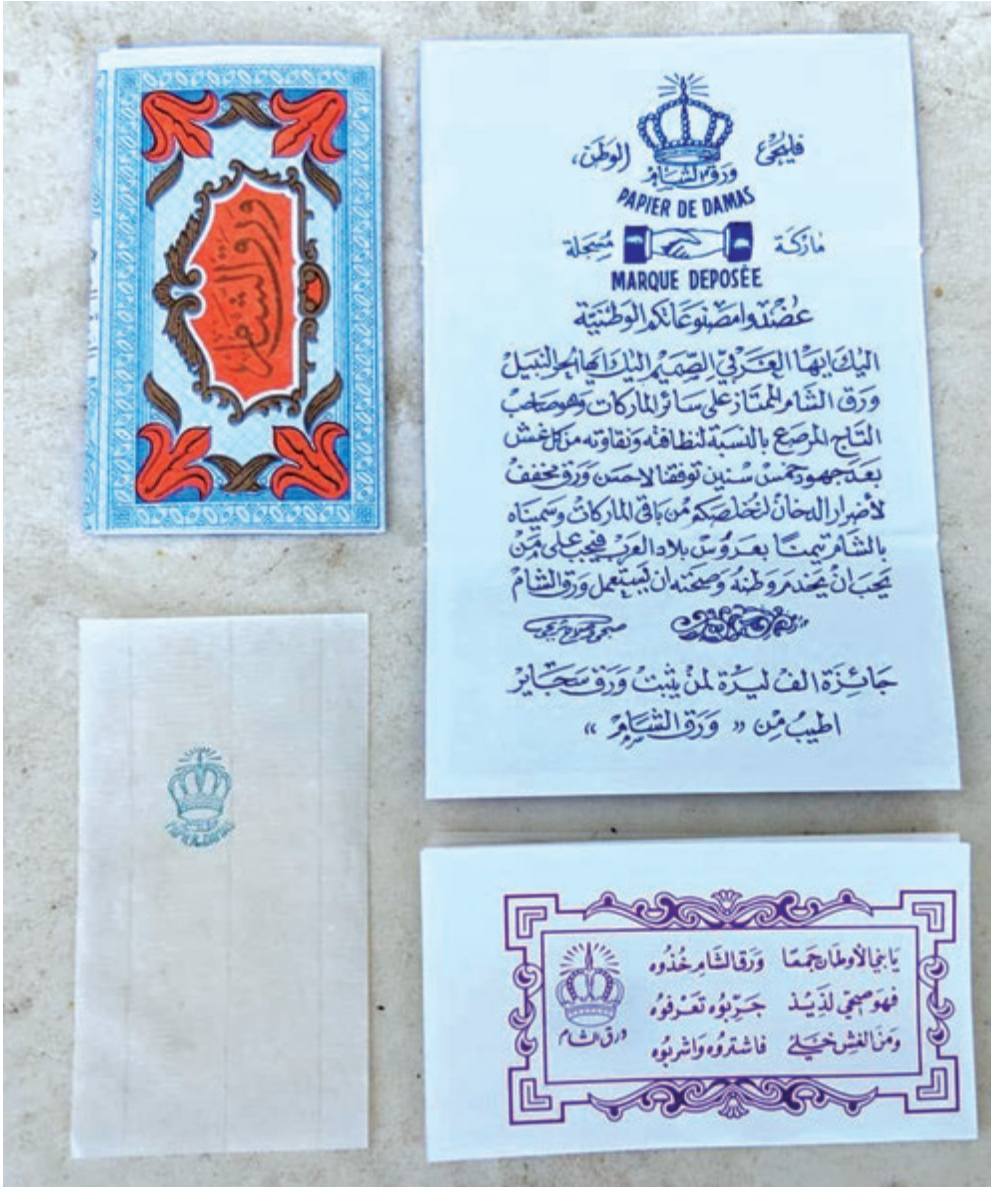 ورق الشام
فليحيَ الوطن،
ورق الشام
PAPIER DE DAMAS
ماركة مسجلة
MARQUE DEPOSÉE
عضدوا مصنوعاتكم الوطنية
اليك ايها العربي الصميم اليك ايها الحر النبيل
ورق الشام الممتاز على سائر الماركات وهو صاحب
التاج المرصع بالنسبة لنظافته ونقاوته من كل غش
بعد جهود خمس سنين توفقنا لاحسن ورق مخفف
لأضرار الدخان لنخلصكم من باقي الماركات وسميناه
بالشام تيمنا بعروس بلاد العرب فيجب على من
يحب ان يخدم وطنه وصحته ان يستعمل ورق الشام
جائزة الف ليرة لمن يثبت ورق سجاير
اطيب من « ورق الشام »
يا بني الأوطان جمعًا ورق الشام خذوه
فهو صحي لذيذ جربوه تعرفوه
ومن الغش خلي فاشتروه واشربوه
ورق الشام